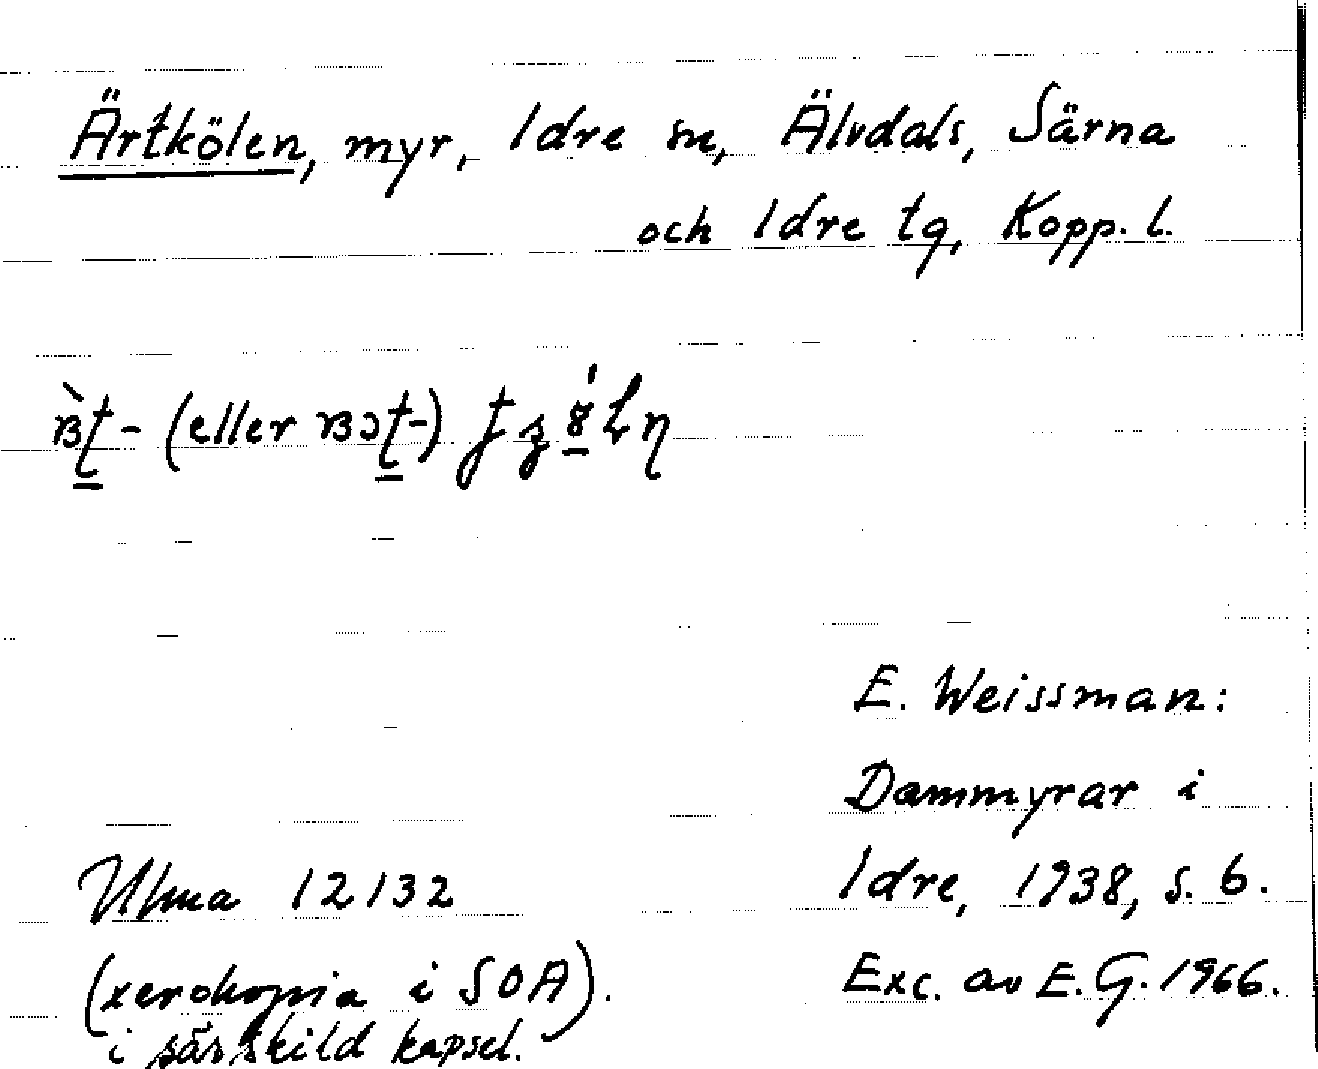 Ärtkölen, myr, Idre sn, Älvdals, Särna
och Idre tg, Kopp. l.
(eller
E. Weissman:
Dammyrar i
Ulma 12132
Idre, 1938, s. 6.
(xerokopia i SOA).
Exc. av E. G. 1966.
i särskild kapsel.